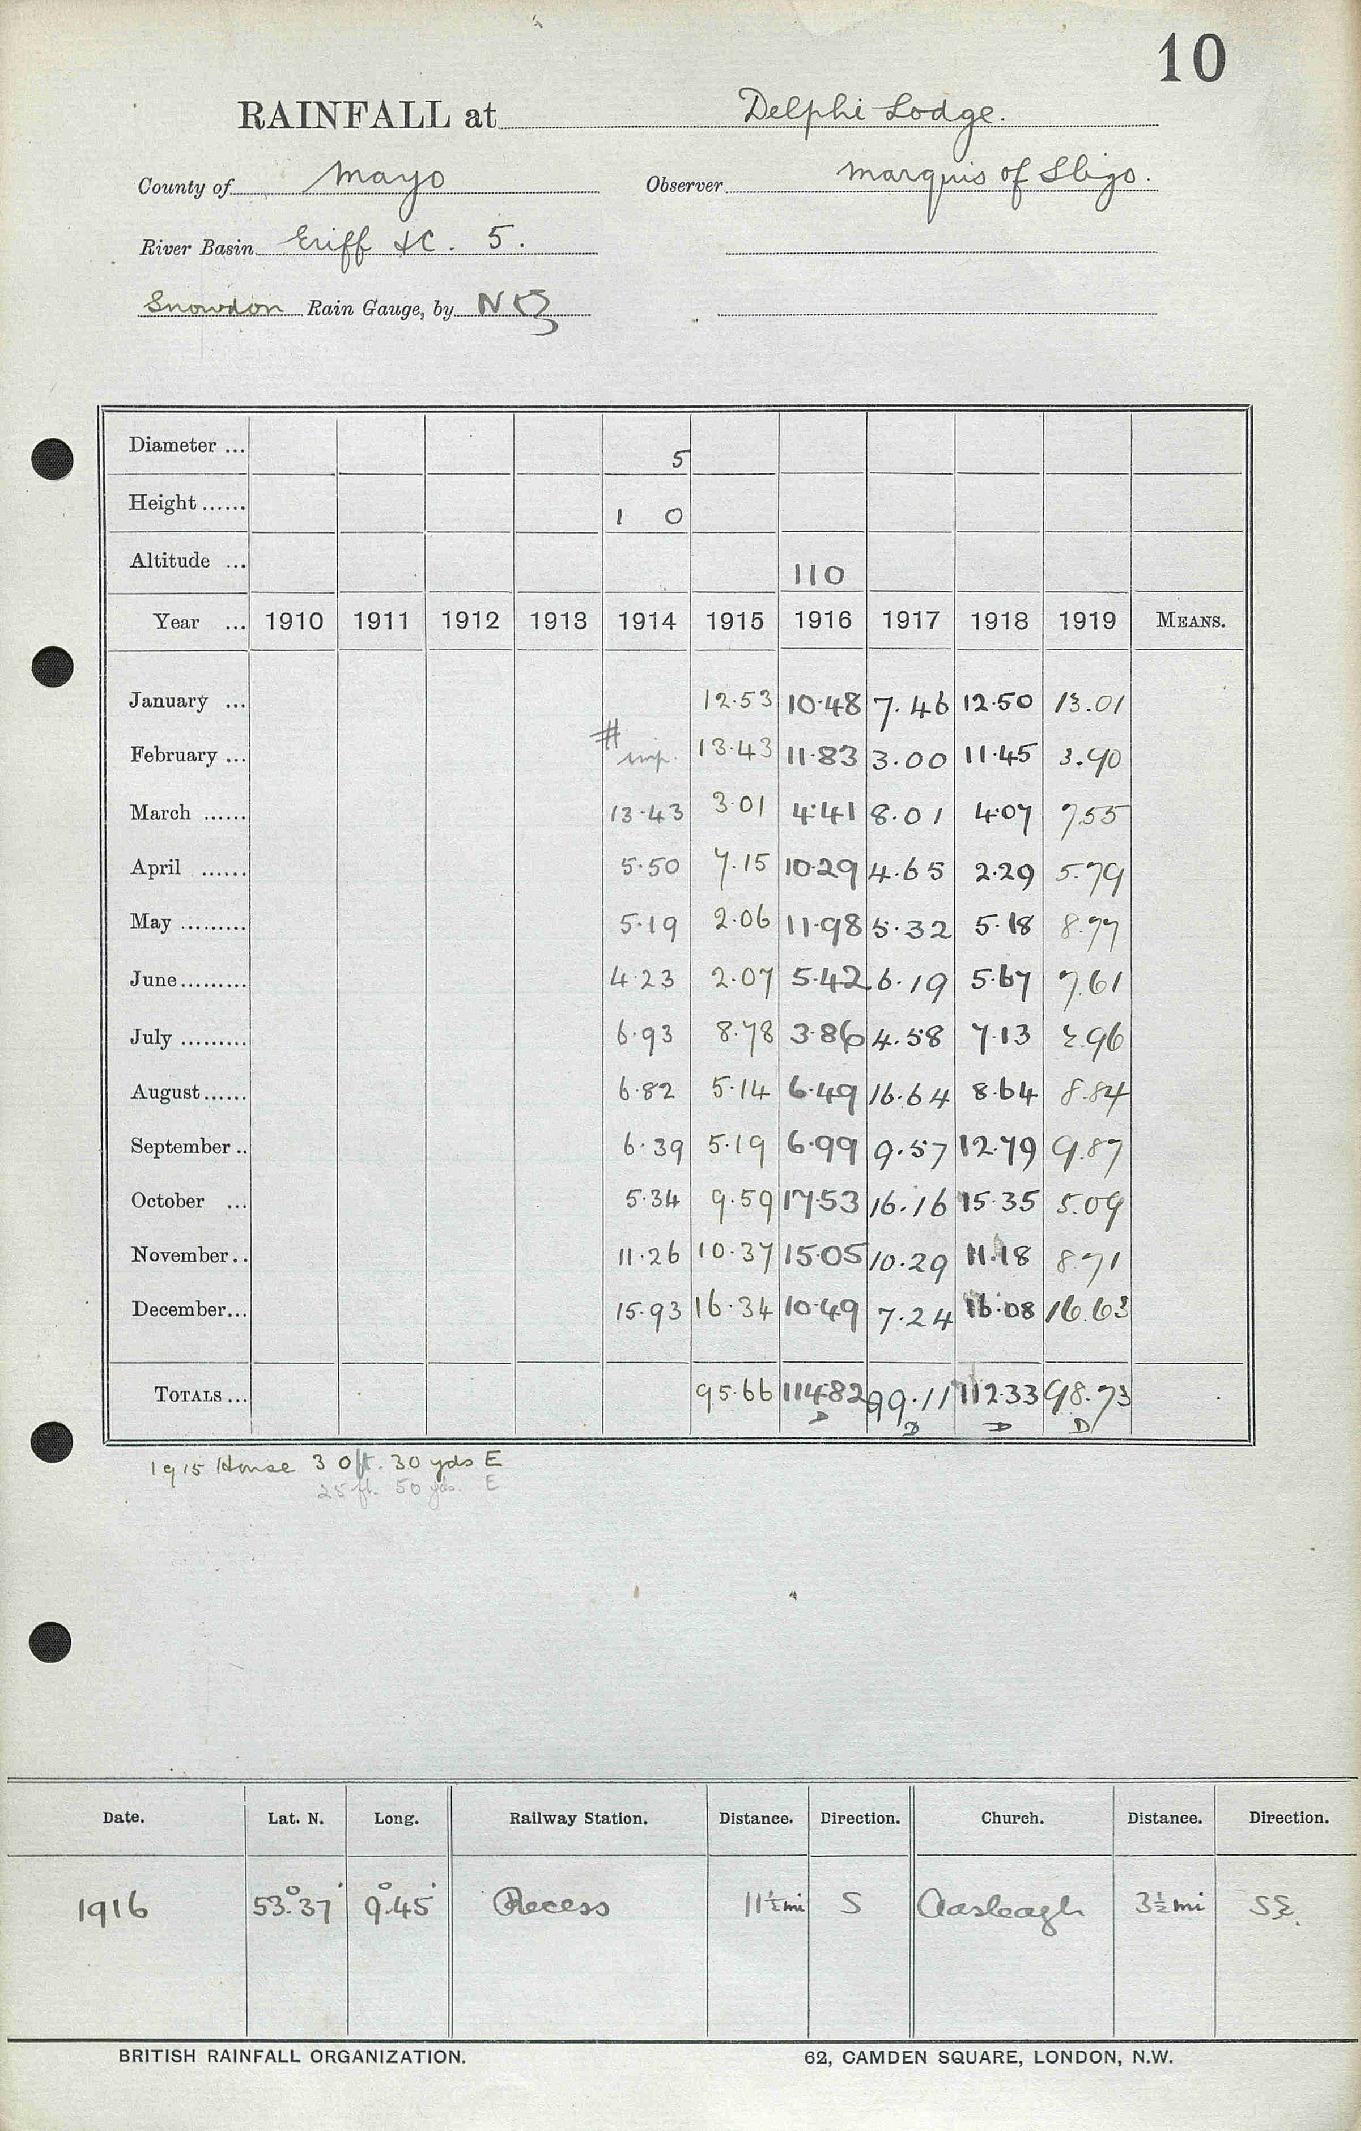 10
RAINFALL at Delphi Lodge.
County of Mayo Observer Marquis of Sligo.
River Basin Eriff &C. 5.
Snowdon Rain Gauge, by N
Diameter ... 5
Height ...... 1 0
Altitude ... 110
Year ... 1910 1911 1912 1913 1914 1915 1916 1917 1918 1919 MEANS.
January ... 12.53 10.48 7.46 12.50 13.01
February ... # imp. 13.43 11.83 3.00 11.45 3.90
March ...... 13.43 3.01 4.41 8.01 4.07 7.55
April ...... 5.50 7.15 10.29 4.65 2.29 5.79
May ......... 5.19 2.06 11.98 5.32 5.18 8.77
June ......... 4.23 2.07 5.42 6.19 5.67 7.61
July ......... 6.93 8.78 3.86 4.58 7.13 2.96
August ...... 6.82 5.14 6.49 16.64 8.64 8.84
September .. 6.39 5.19 6.99 9.57 12.79 9.87
October ... 5.34 9.59 17.53 16.16 15.35 5.09
November .. 11.26 10.37 15.05 10.29 11.18 8.71
December ... 15.93 16.34 10.49 7.24 16.08 16.63
TOTALS ... 95.66 114.82 99.11 112.33 98.73
D D D D
1915 House 30 ft. 30 yds E
25 ft. 50 yds. E
Date. Lat. N. Long. Railway Station. Distance. Direction. Church. Distance. Direction.
1916 53°.37' 9°.45' Recess 11½ mi S Aasleagh 3½ mi SE.
BRITISH RAINFALL ORGANIZATION. 62, CAMDEN SQUARE, LONDON, N.W.